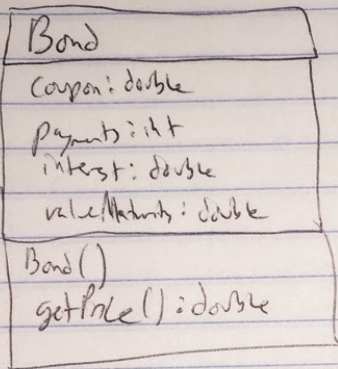 Bond
coupon: double
payments: int
interest: double
valueMaturity: double
Bond()
getPrice(): double